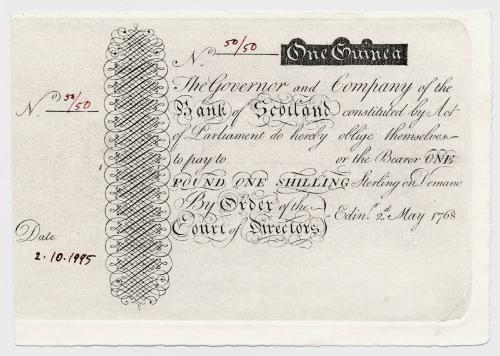 No. 50/50 One Guinea
No. 50/50
The Governor and Company of the
Bank of Scotland constituted by Act
of Parliament do hereby oblige themselves
to pay to or the Bearer ONE
POUND ONE SHILLING Sterling on Demand
By Order of the
Court of Directors
Edinr. 2d. May 1768
Date
2.10.1995